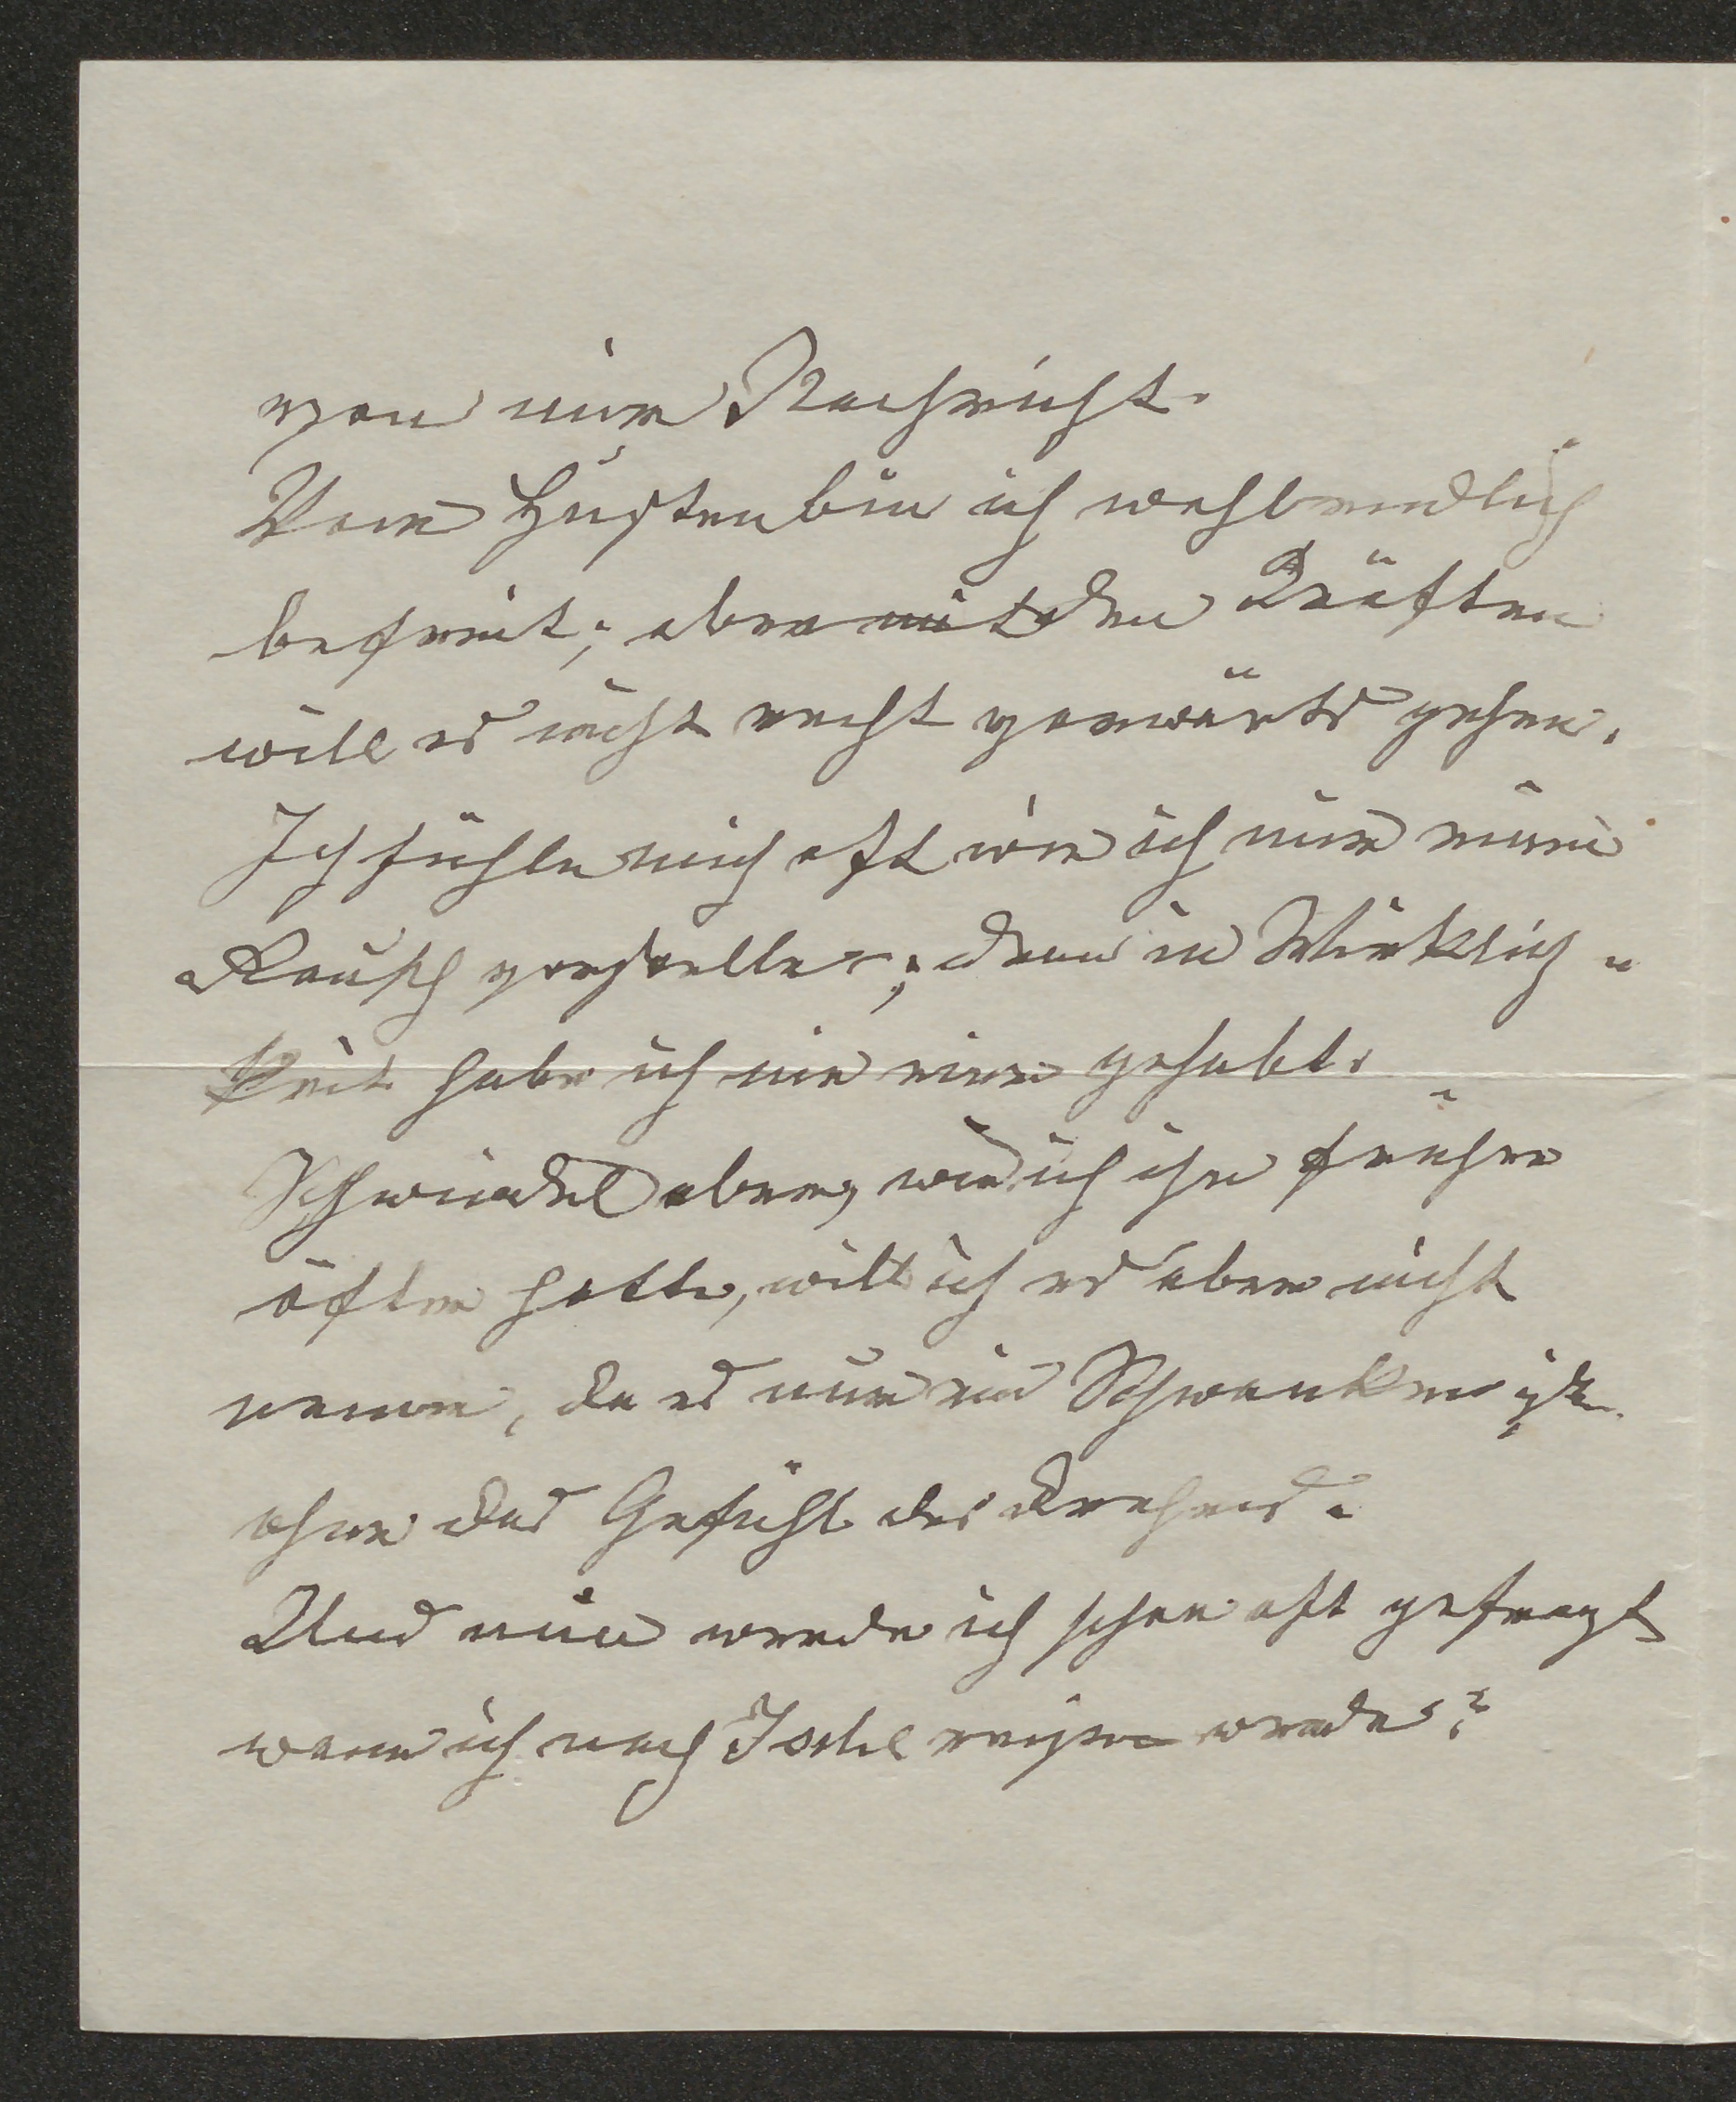 von mir Nachricht.
Vom Husten bin ich wohl endlich
befreit; aber mit den Kräften
will es nicht recht vorwärts gehen.
Ich fühle mich oft wie ich mir einen
Rausch vorstelle; denn in Wirklich-
keit habe ich nie einen gehabt.
Schwindel aber, wie ich ihn früher
öfter hatte, will ich es aber nicht
nennen, da es nur ein Schwanken ist
ohne das Gefühl des Drehens.
Und nun werde ich schon oft gefragt
wann ich nach Ischl reisen werde?